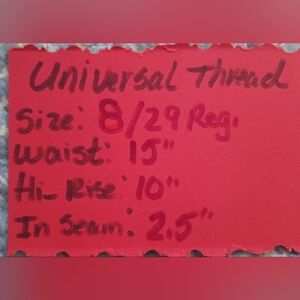 Universal Thread
Size: 8/29 Reg.
Waist: 15"
Hi-Rise: 10"
In Seam: 2.5"